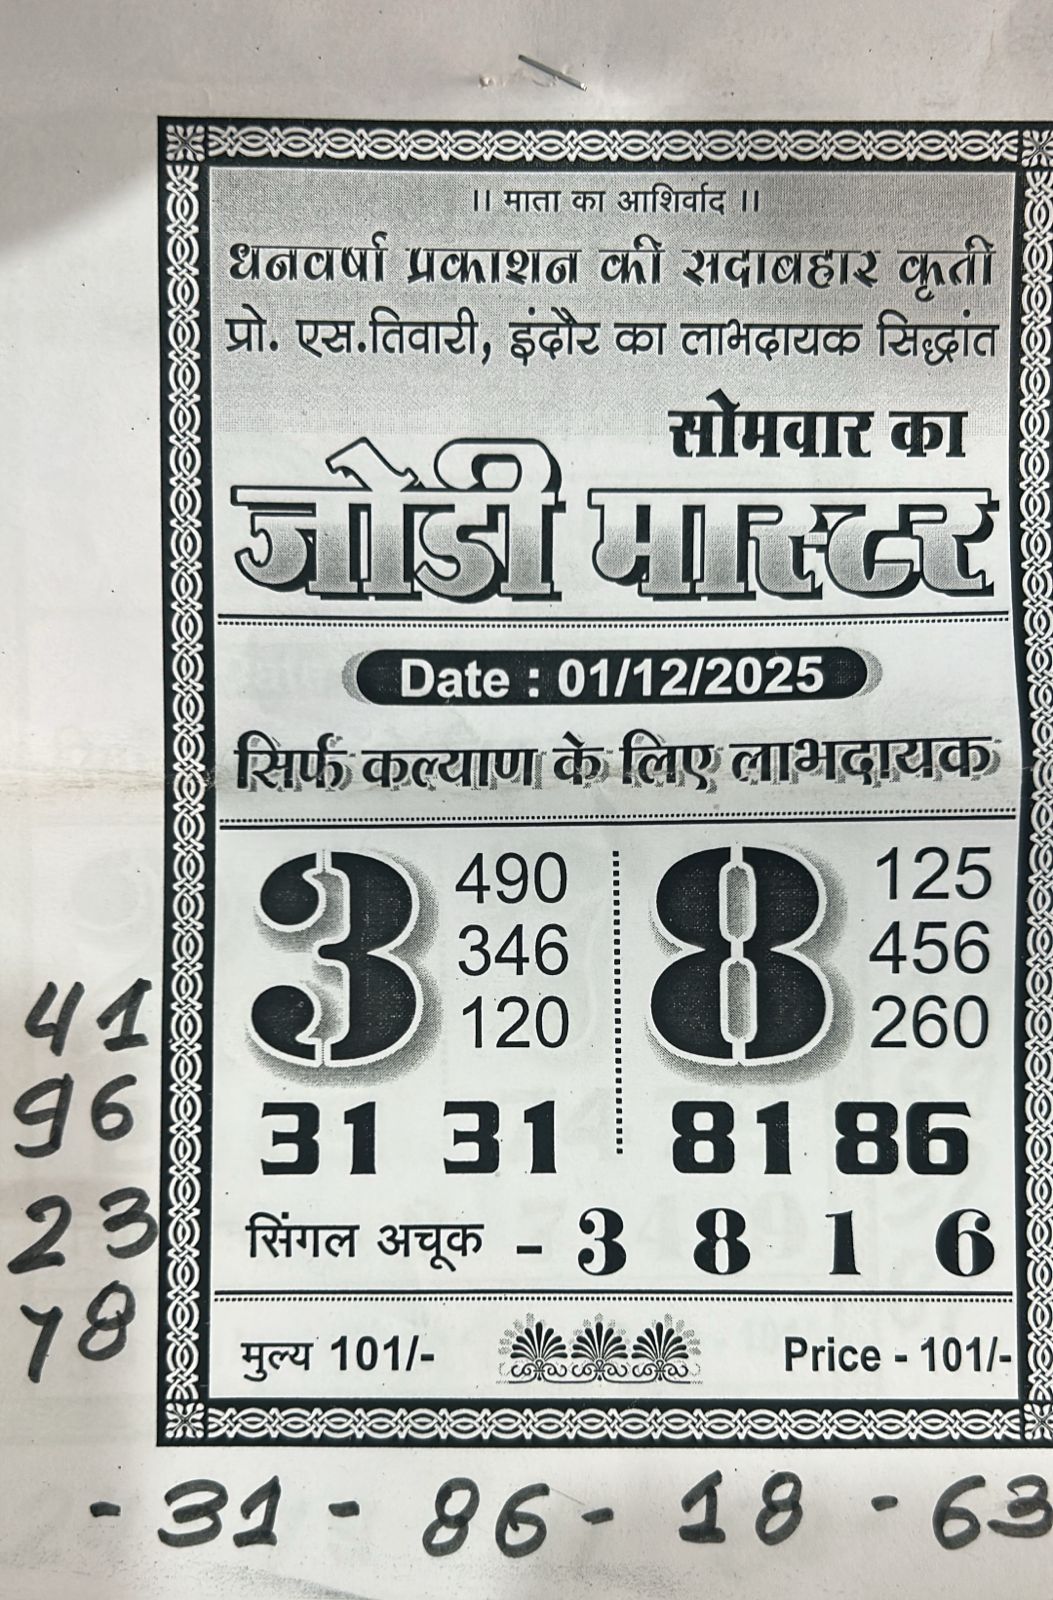 ।। माता का आशिर्वाद ।।
धनवर्षा प्रकाशन की सदाबहार कृती
प्रो. एस.तिवारी, इंदौर का लाभदायक सिद्धांत
सोमवार का
जोडी मास्टर
Date : 01/12/2025
सिर्फ कल्याण के लिए लाभदायक
3 490 8 125
346 456
120 260
31 31 81 86
सिंगल अचूक - 3 8 1 6
मुल्य 101/- Price - 101/-
41
96
23
78
- 31 - 86 - 18 - 63